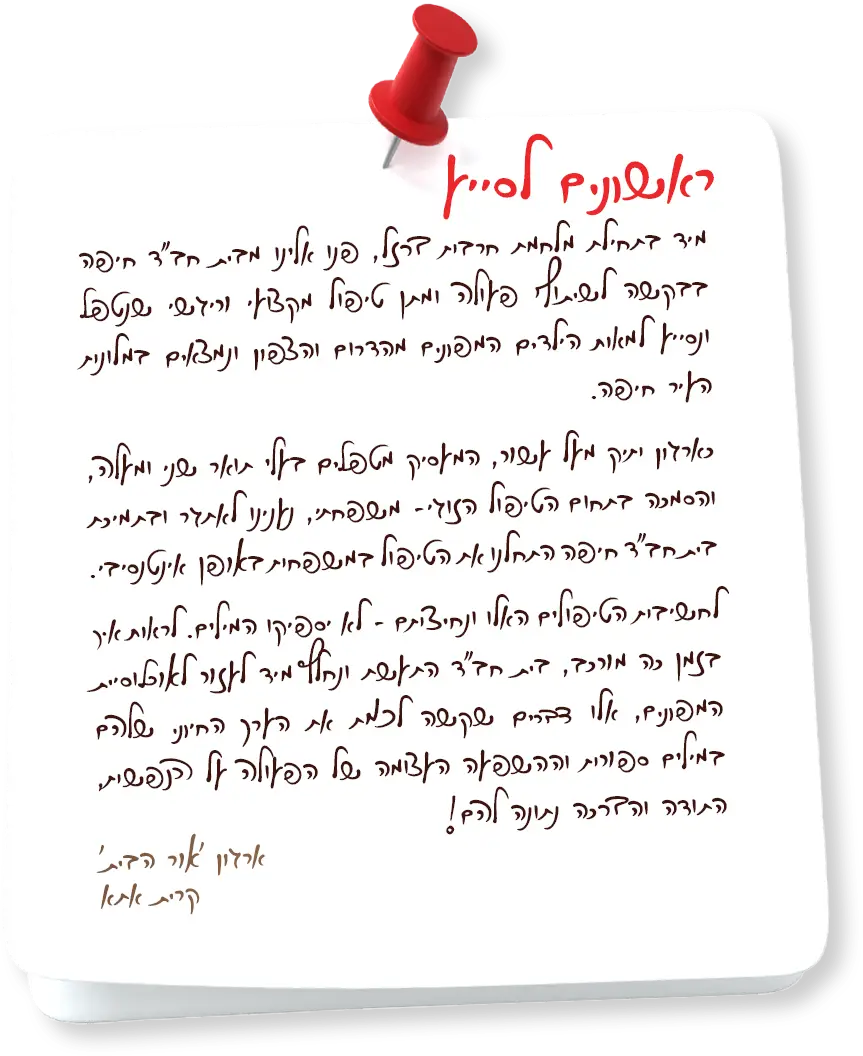 ראשונים לסייע
מיד בתחילת מלחמת חרבות ברזל, פנו אלינו מבית חב"ד חיפה
בבקשה לשיתוף פעולה ומתן טיפול מקצועי וריגשי שנטפל
ונסייע למאות הילדים המפונים מהדרום והצפון ונמצאים במלונות
העיר חיפה.
כארגון ותיק מעל עשור, המעסיק מטפלים בעלי תואר שני ומעלה,
והסמכה בתחום הטיפול הזוגי- משפחתי, נענינו לאתגר ובתמיכת
בית חב"ד חיפה התחלנו את הטיפול במשפחות באופן אינטנסיבי.
לחשיבות הטיפולים האלו ונחיצותם - לא יספיקו המילים. לראות איך
בזמן כה מורכב, בית חב"ד התעשת ונחלץ מיד לעזור לאוכלוסיית
המפונים, אלו דברים שקשה לכמת את הערך החיוני שלהם
במילים ספורות וההשפעה העצומה של הפעולה על הנפשות,
התודה והברכה נתונה להם!
ארגון 'אור הבית'
קרית אתא